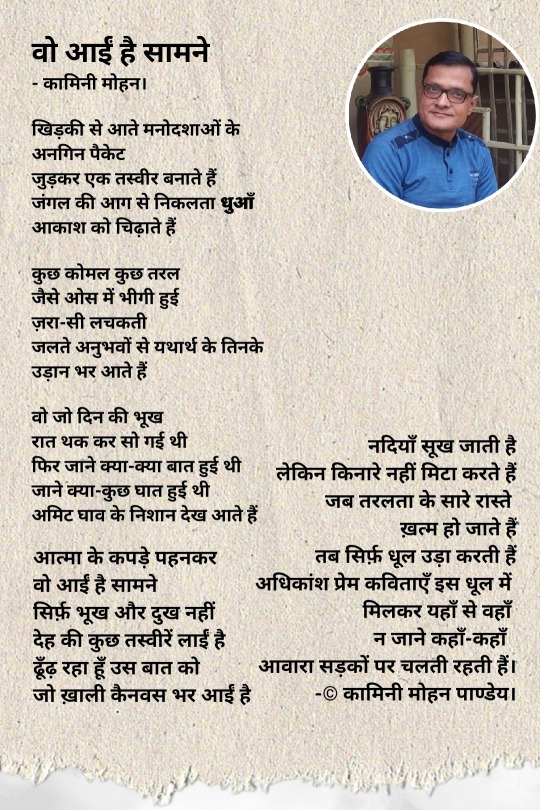 वो आईं है सामने
- कामिनी मोहन।
खिड़की से आते मनोदशाओं के
अनगिन पैकेट
जुड़कर एक तस्वीर बनाते हैं
जंगल की आग से निकलता धुआँ
आकाश को चिढ़ाते हैं
कुछ कोमल कुछ तरल
जैसे ओस में भीगी हुई
ज़रा-सी लचकती
जलते अनुभवों से यथार्थ के तिनके
उड़ान भर आते हैं
वो जो दिन की भूख
रात थक कर सो गई थी
फिर जाने क्या-क्या बात हुई थी
जाने क्या-कुछ घात हुई थी
अमिट घाव के निशान देख आते हैं
आत्मा के कपड़े पहनकर
वो आईं है सामने
सिर्फ़ भूख और दुख नहीं
देह की कुछ तस्वीरें लाईं है
ढूँढ़ रहा हूँ उस बात को
जो ख़ाली कैनवस भर आईं है
नदियाँ सूख जाती है
लेकिन किनारे नहीं मिटा करते हैं
जब तरलता के सारे रास्ते
ख़त्म हो जाते हैं
तब सिर्फ़ धूल उड़ा करती हैं
अधिकांश प्रेम कविताएँ इस धूल में
मिलकर यहाँ से वहाँ
न जाने कहाँ-कहाँ
आवारा सड़कों पर चलती रहती हैं।
-© कामिनी मोहन पाण्डेय।